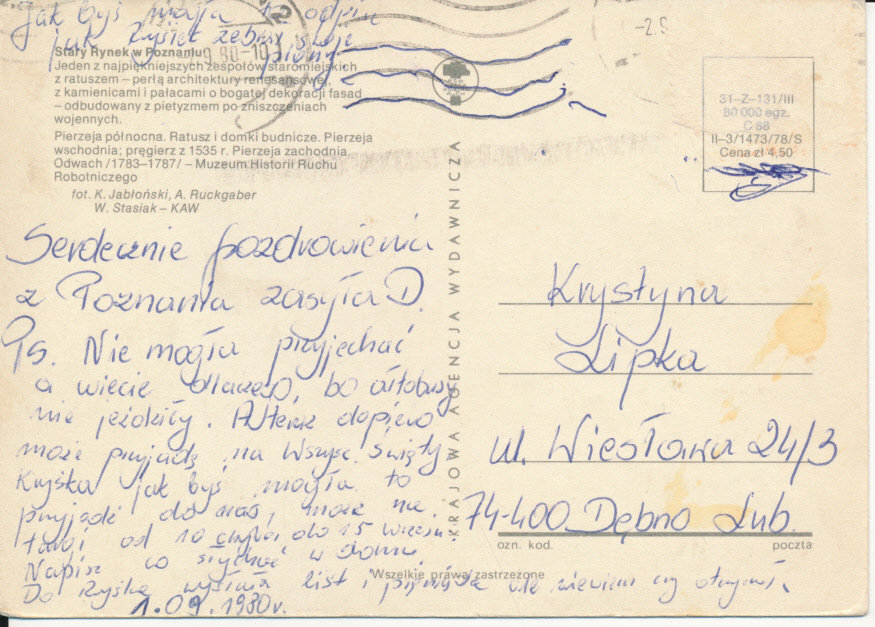 jak byś mogła to odpisz
jak Rysiek zebrał swoje
Stary Rynek w Poznaniu
Jeden z najpiękniejszych zespołów staromiejskich
z ratuszem – perłą architektury renesansowej,
z kamienicami i pałacami o bogatej dekoracji fasad
– odbudowany z pietyzmem po zniszczeniach
wojennych.
Pierzeja północna. Ratusz i domki budnicze. Pierzeja
wschodnia; pręgierz z 1535 r. Pierzeja zachodnia.
Odwach /1783–1787/ – Muzeum Historii Ruchu
Robotniczego
fot. K. Jabłoński, A. Ruckgaber
W. Stasiak – KAW
Serdecznie pozdrowienia
z Poznania zasyła D.
Ps. Nie mogła przyjechać
a wiecie dlaczego, bo ałtobusy
nie jeździły. A teraz dopiero
może przyjadę na Wszysc. Święty
Kryśka jak byś mogła to
przyjedź do nas, może na
targi od 10 chyba do 15 wrześn.
Napisz co słychać w domu
Do Ryśka wysłała list i pieniądze ale niewiem czy otrzymał.
1.09.1980r.
KRAJOWA AGENCJA WYDAWNICZA
S1–Z–131/III
80 000 egz.
C 88
II–3/1473/78/S
Cena zł 4,50
Krystyna
Lipka
ul. Wiesława 24/3
74-400 Dębno Lub.
ozn. kod. poczta
Wszelkie prawa zastrzeżone